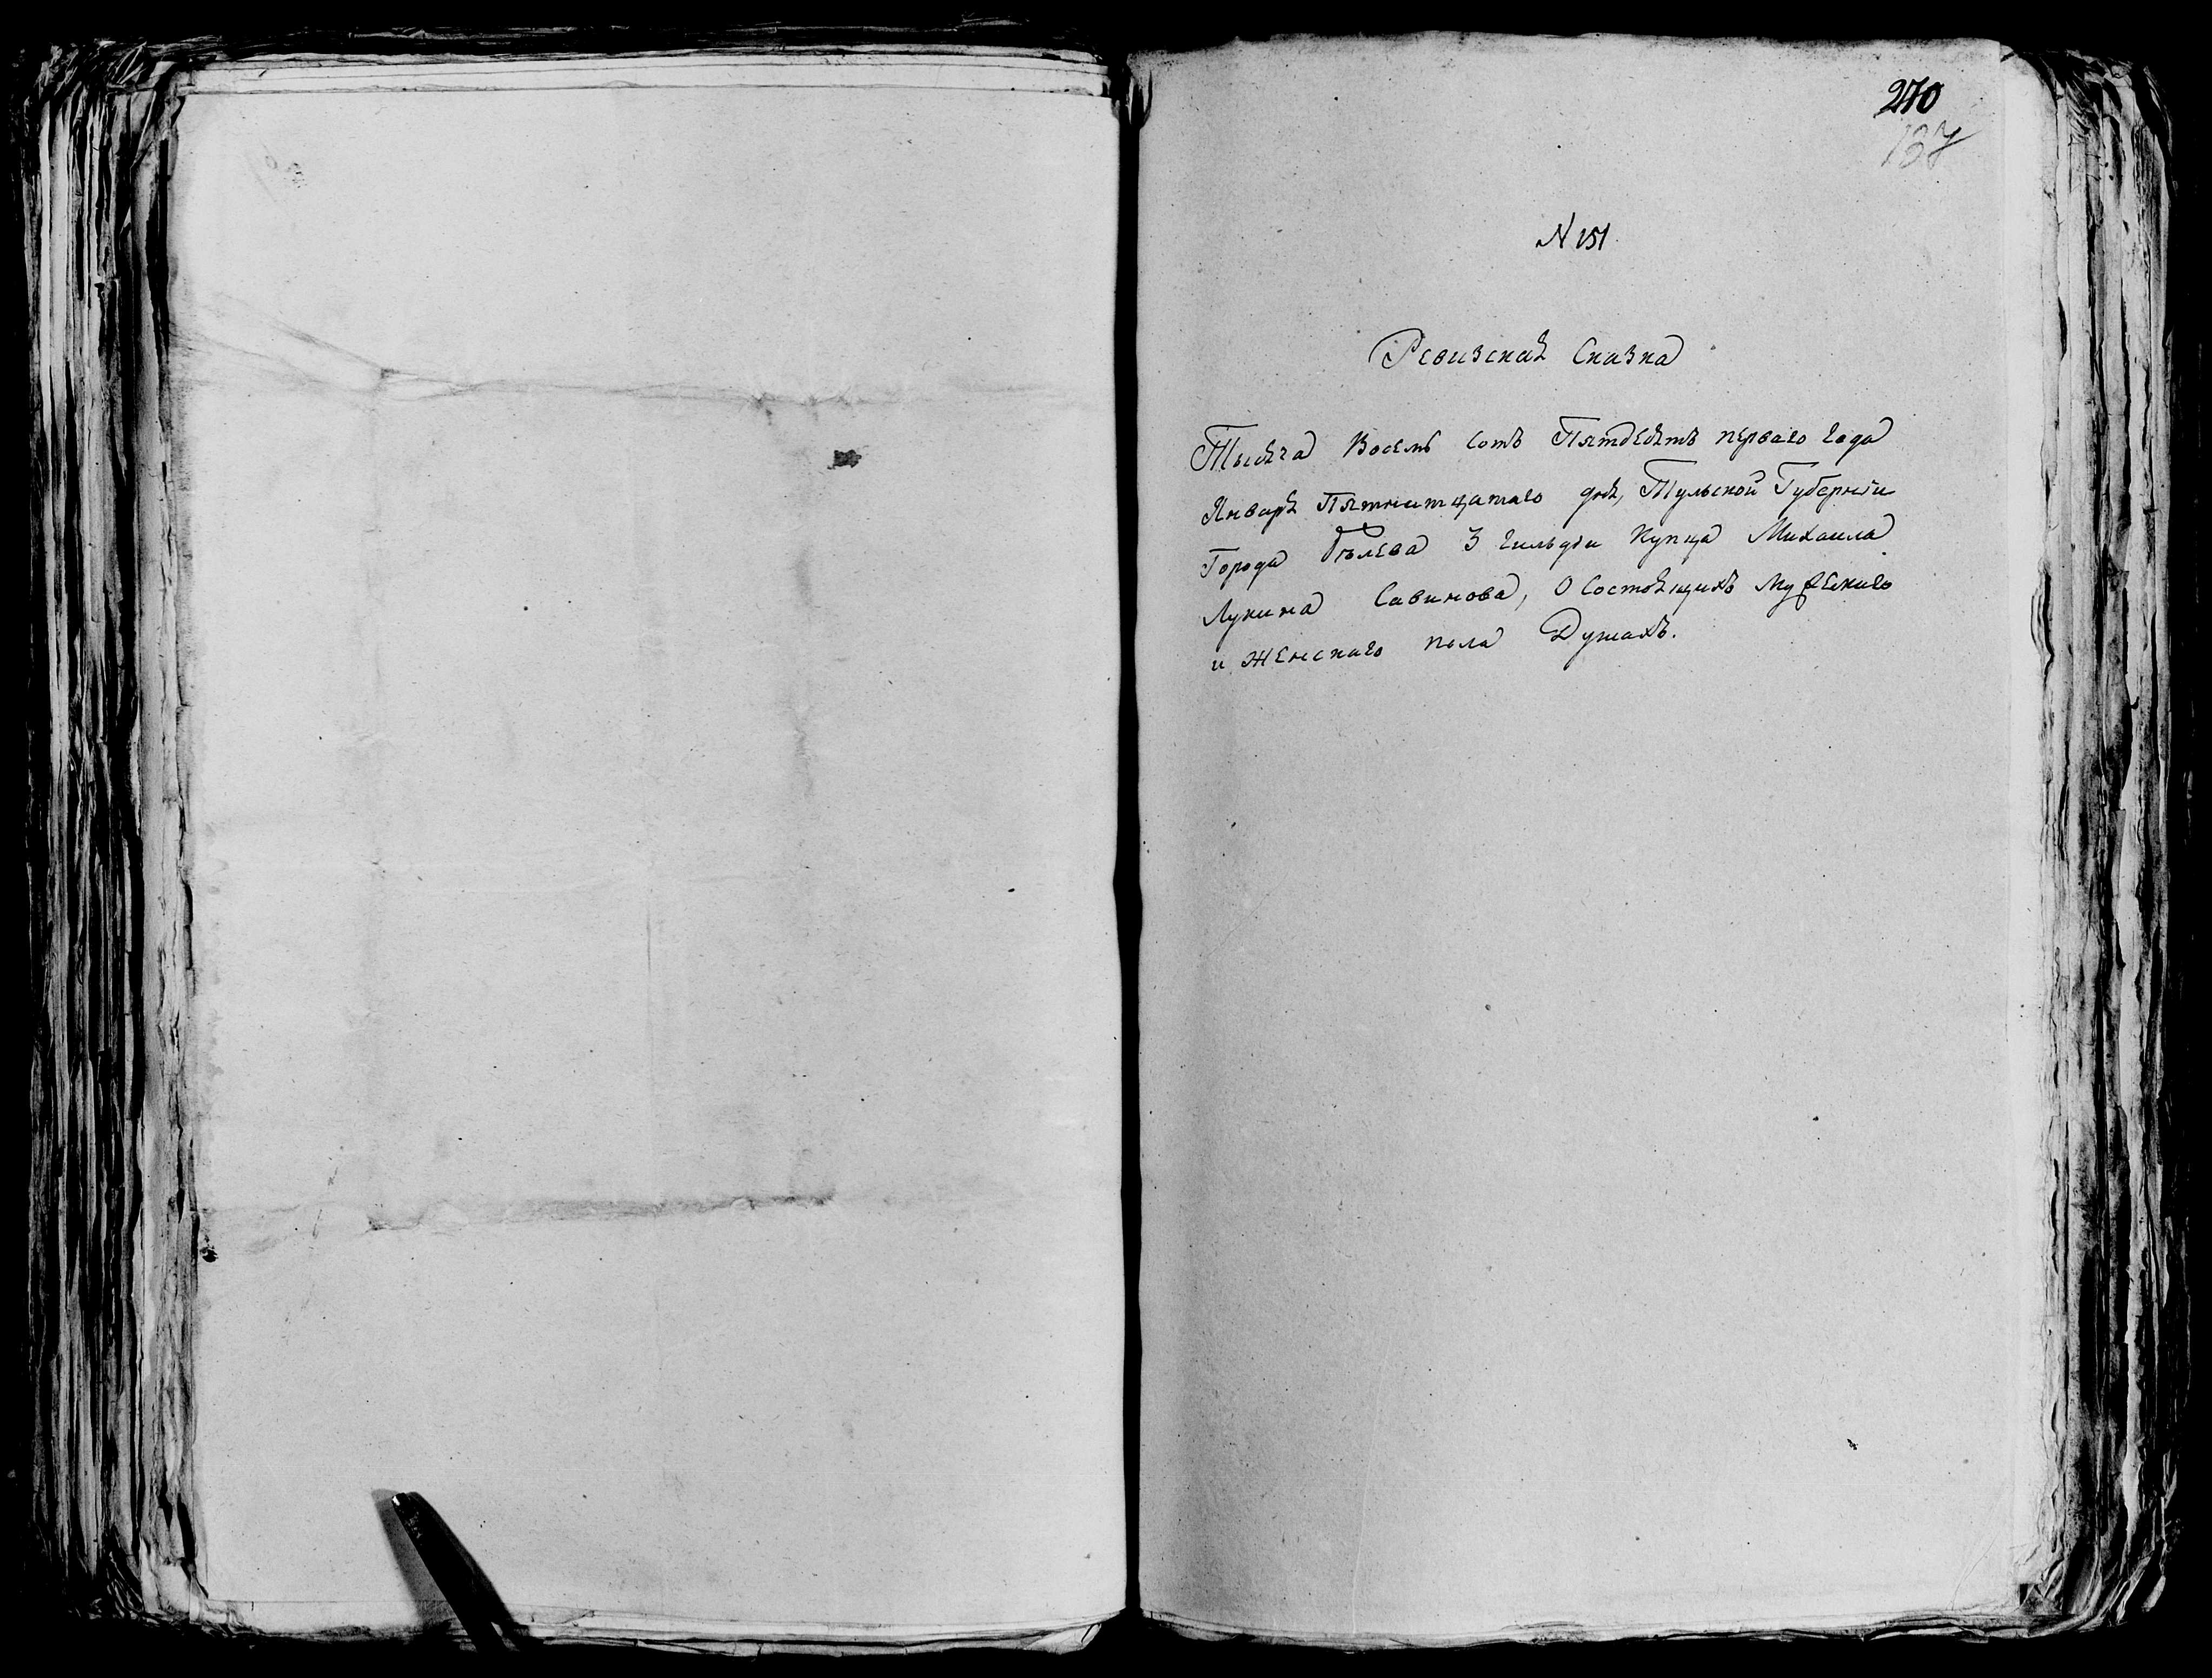 270
137
N 151.
Ревизская Сказка
Тысяча Восемь сотъ Пятдесятъ перваго года
Января Пятнитцатаго дня, Тульской Губерніи
Города Бѣлева 3 гильдіи Купца Михаила
Лукина Савинова, О Состоящихъ мужескаго
и женскаго пола Душахъ.